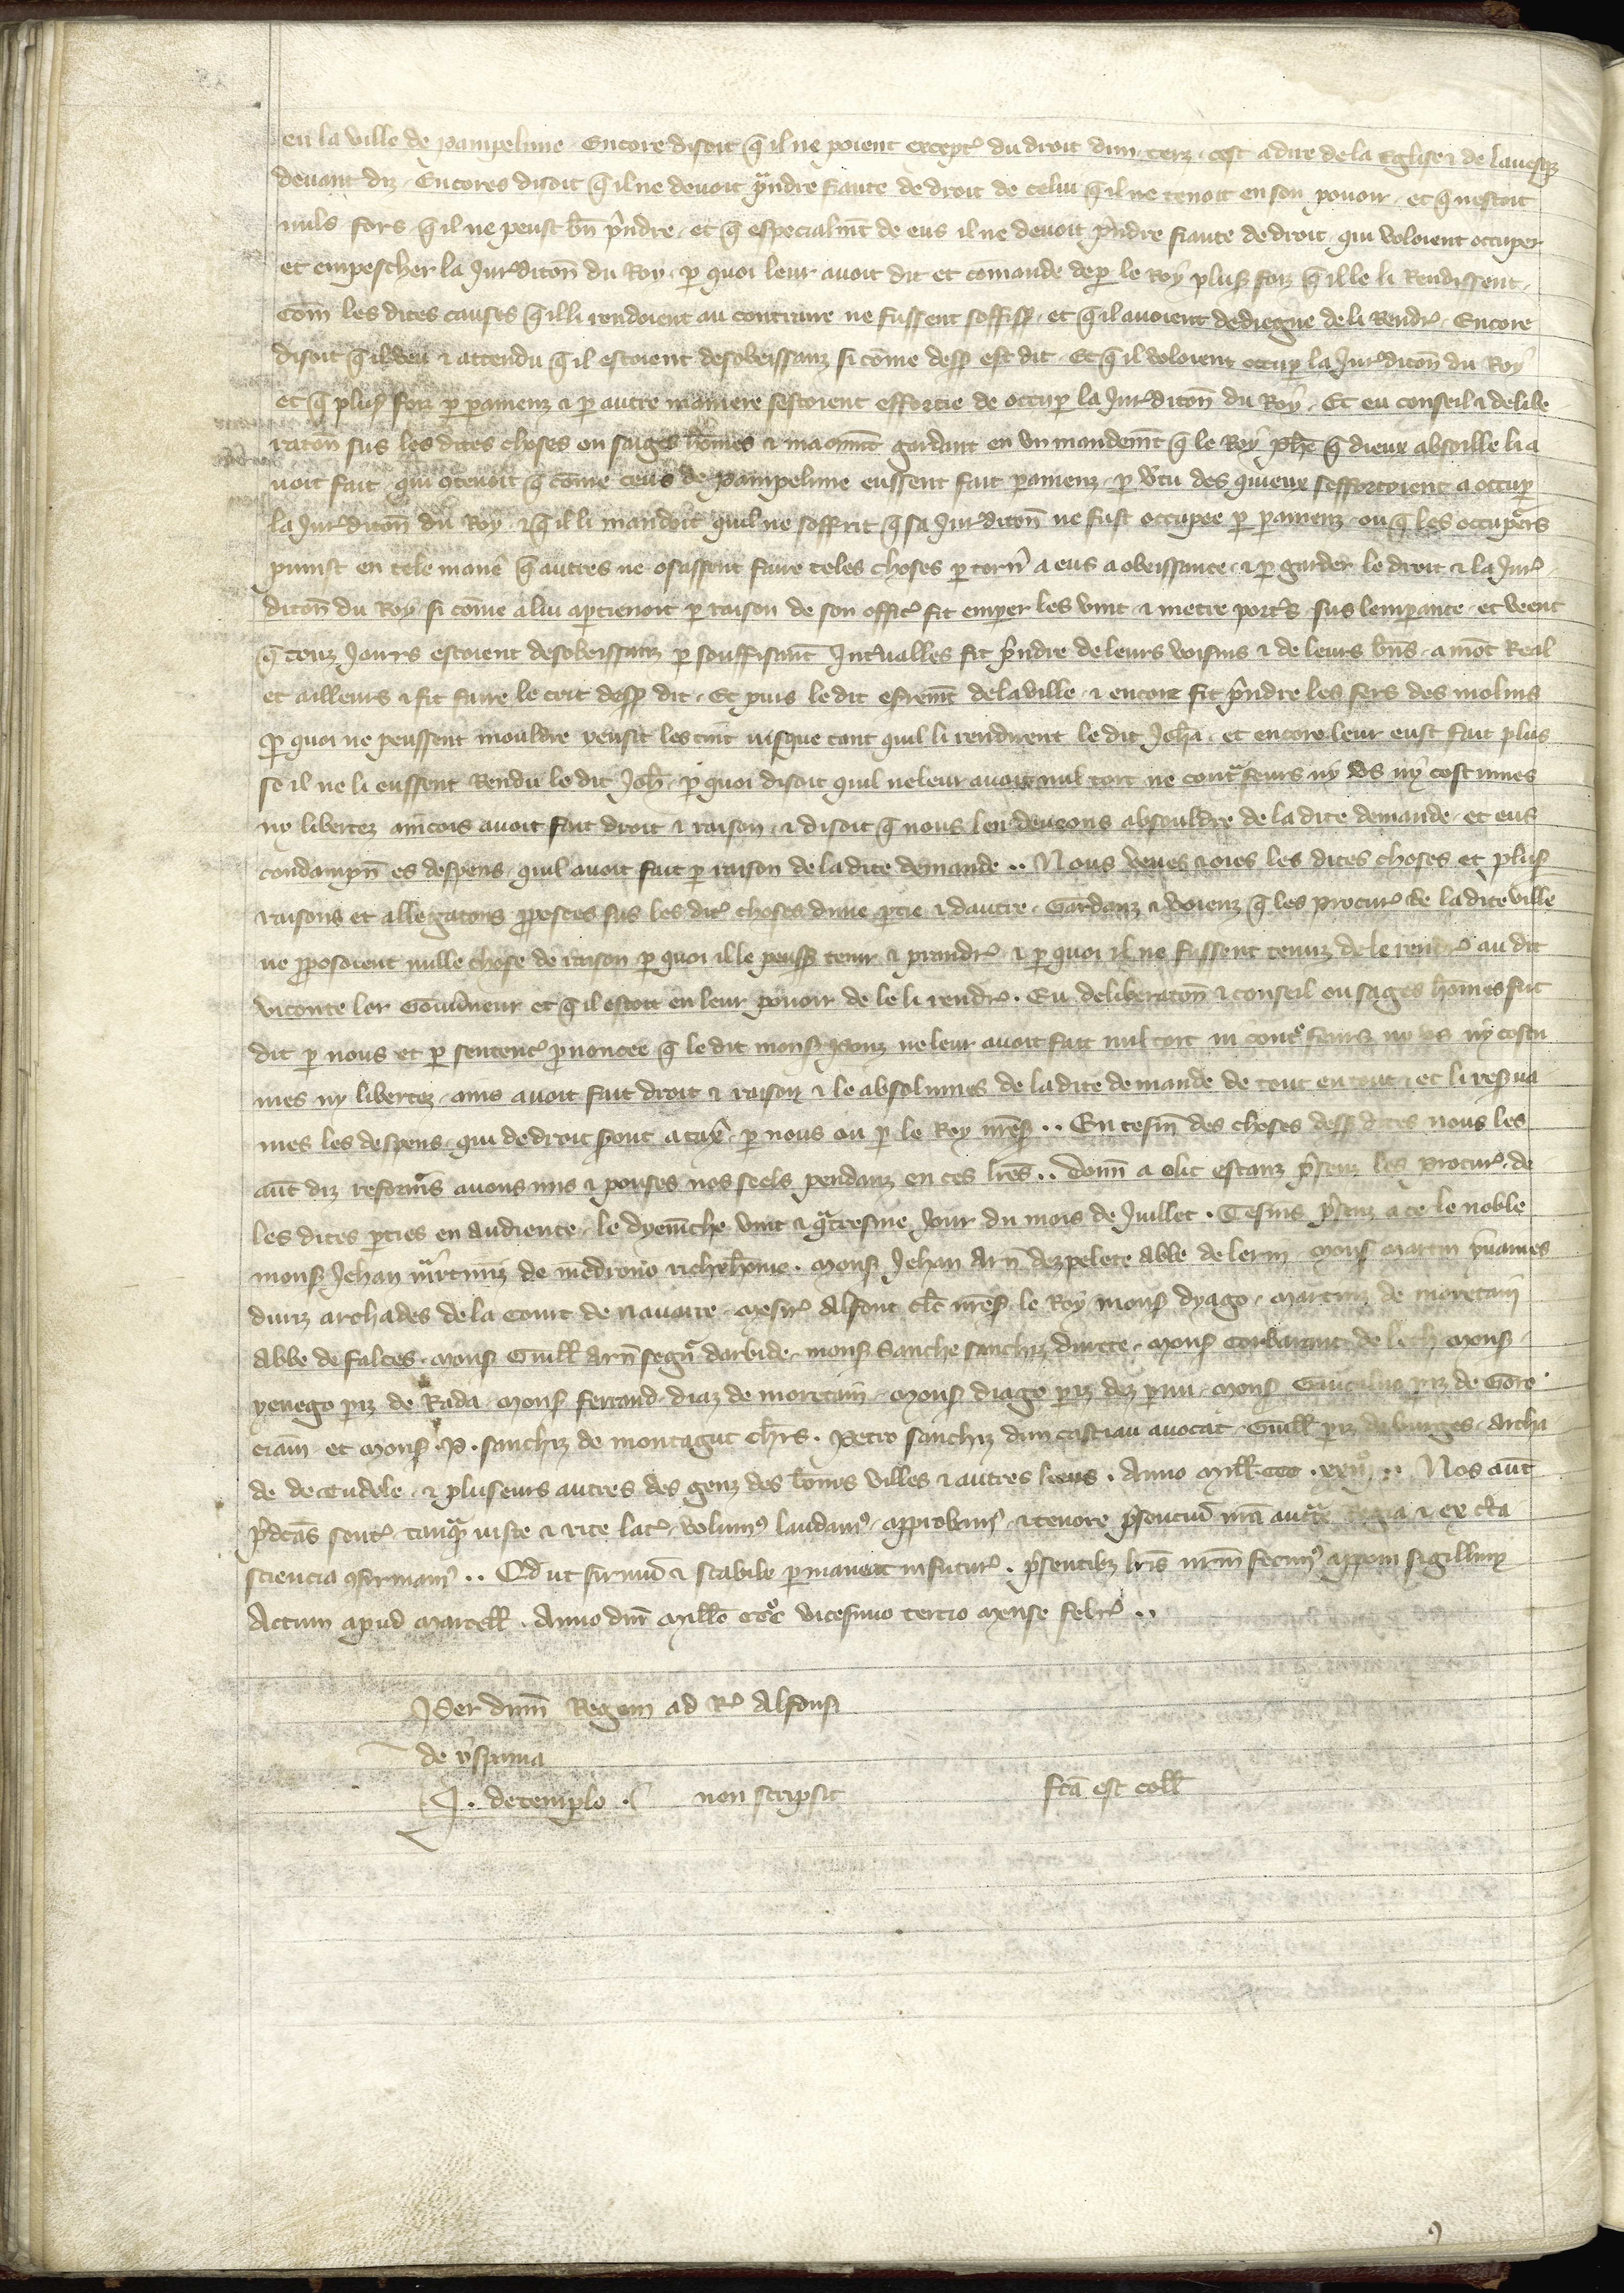 en la ville de pampelune. Encore disoit q̃ il ne poient except᷑ du droit dun terz. cest a dire de la Eglise ⁊ de lauesq̃
deuant diz. Encores disoit q̃ il ne deuoit p̃ndre fiance de droit de celui q̃ il ne tenoit en son pouoir. et q̃ nestoit
nuls fors q̃ il ne peust bn̄ p̃ndre. et q̃ especialmt̄ de eus il ne deuoit p̃ndre fiance de droit. qui voloient occuper
et empescher la Jur᷑diton̄ du Roy. p̱ quoi leur auoit dit et comande de p̱ le Roy plus᷑ foiz q̃ il le li Rendissent.
Com̄ les dites causes q̃ il li rendoient au contraire ne fussent soffis᷑. et q̃ il auoient de li Rendr᷑. Encore
disoit q̃ il veu ⁊ attendu q̃ il estoient desobeissanz si cōme dess᷑ est dit. Et q̃ il voloient occup̱ la Jur᷑diton̄ du Roy
et q̃ plus᷑ foiz p̱ p̱amenz ⁊ p̱ autre maniere sestoient effortie de occup̱ la Jur᷑diton̄ du Roy. Et eu conseil ⁊ delibe
raton̄ sus les dites choses ou sages hōmes ⁊ gardant en un mandemt̄ q̃ le Roy phē q̃ dieux absoille li a
uoit fait. qui q̃ cōme ceus de Pampelune eussent fait p̱amenz. p̱ v̄tu des quieux sefforcoient a occup̱
la Jur᷑diton̄ du Roy. ⁊ q̃ il li mandoit quil ne soffrit q̃ sa Jur᷑diton̄ ne fust occupee p̱ p̱amenz. ou q̃ les occup̱rs
punist en tele manē q̃ autres ne osassent faire teles choses. p̱ torn̄ a eus a obeissance. ⁊ p̱ garder le droit ⁊ la Jur᷑
diton̄ du Roy si cōme a lui ap̱tienoit p̱ raison de son offic᷑ fit les vint ⁊ metre port᷑s sus. et veent
q̃ touz Jours estoient desobeissanz p̱ souffisant Int᷑ualles fit p̃ndre de leurs voisins ⁊ de leurs bn̄s. a mōt Real
et ailleurs ⁊ fit faire le tort dess᷑ dit. Et puis le dit de la ville. ⁊ encore fit p̃ndre les fers des molins
p̱ quoi ne peussent mouldre iusque tant quil li rendirent le dit Joh̄. et encore leur eust fait plus
se il ne li eussent Rendu le dit Joh̄. p̱ quoi disoit quil ne leur auoit nul tort ne cont᷑ feurs ny vs ny costumes
ny libertez aincois auoit fait droit ⁊ raison. ⁊ disoit q̃ nous len deueons absouldre de la dite demande. et eus
condampn̄ es despens. quil auoit fait p̱ raison de la dite demande.. Nous veues ⁊ oies les dites choses et plus᷑
raisons et allegatons p̱posees sus les dit᷑ choses dune p̱tie ⁊ dautre. Gardanz ⁊ voienz q̃ les Procur᷑ de la dite ville
ne p̱posoient nulle chose de raison p̱ quoi il le peuss᷑ tenir ⁊ prandr᷑. ⁊ p̱ quoi il ne fussent tenuz de le rendr᷑ au dit
viconte lor Gouu̇neur et q̃ il estoit en leur pouoir de le li rendr᷑. Eu deliberaton̄ ⁊ conseil ou sages hōmes fut
dit p̱ nous et p̱ sentenc᷑ p̱noncee q̃ le dit mons᷑ Ponz ne leur auoit fait nul tort ni cont᷑ feurs ny vs ny costu
mes ny libertez. ains auoit fait droit ⁊ raison ⁊ le absolumes de la dite demande de tout en tout. et li resua
mes les despens. qui de droit sont a tax̄. p̱ nous ou p̱ le Roy mess᷑.. En tesm̄ des choses dess᷑ dites nous les
aut̄ diz reformrs auons mis ⁊ pouses nos seels pendanz en ces lrēs.. donn̄ a olit estanz p̃senz les Procur᷑ de
les dites p̱ties en audience. le dyem̄che vint ⁊ q̃tresme Jour du mois de Juillet. Tesm̄s p̃senz a ce le noble
mons᷑ Jehan m̃rtiniz de medrono richehōme. Mons᷑ Jehan Arn̄ dezpelete abbe de lerin. Mons᷑ Martin
duiz archades de la Court de nauarre. Mesir᷑ Alfont clēc mess᷑ le Roy mons᷑ dyago. Martiniz de moretain
abbe de falces. Mons᷑ Guill̄ Arn̄ segn̄r darbide. mons᷑ Sanche sanchiz durete. Mons᷑ Corbarant de leth Mons᷑
yenego p̱iz de Rada. Mons᷑ ferrand. diaz de moretain. Mons᷑ diago p̱iz dez p̱un. Mons᷑ p̱iz de Gore
ciam. et Mons᷑ .P. sanchiz de montagut chrs̄. Petro sanchiz dun castiau auocat. Guill̄ p̱iz de burges. archa
de de tudele. ⁊ pluseurs autres des genz des bōnes villes ⁊ autres leus. Anno Mill̄ ccc. xxii°.. Nos aut̄
p̃dcās sent᷑. tanq̃ iuste ⁊ rite lat᷑. volum᷒ laudam᷒. approbam᷒. ⁊ tenore p̃sentiū nrā auct̄te Regia ⁊ ex c̄ta
sciencia ꝯfirmam᷒.. Qd̄ ut firmū ⁊ stabile p̱maneat in futur᷑. p̃sentibz lrīs nrm̄ fecim᷒ apponi sigillum
Actum apud Marcell̄. Anno dnī Mill̄o ccc° vicesimo tercio Mense febr᷑..
Per dnm̄ Regem ad R᷑ Alfonsi
de yspania
J. de templo. non scripsit
fcā est coll̄